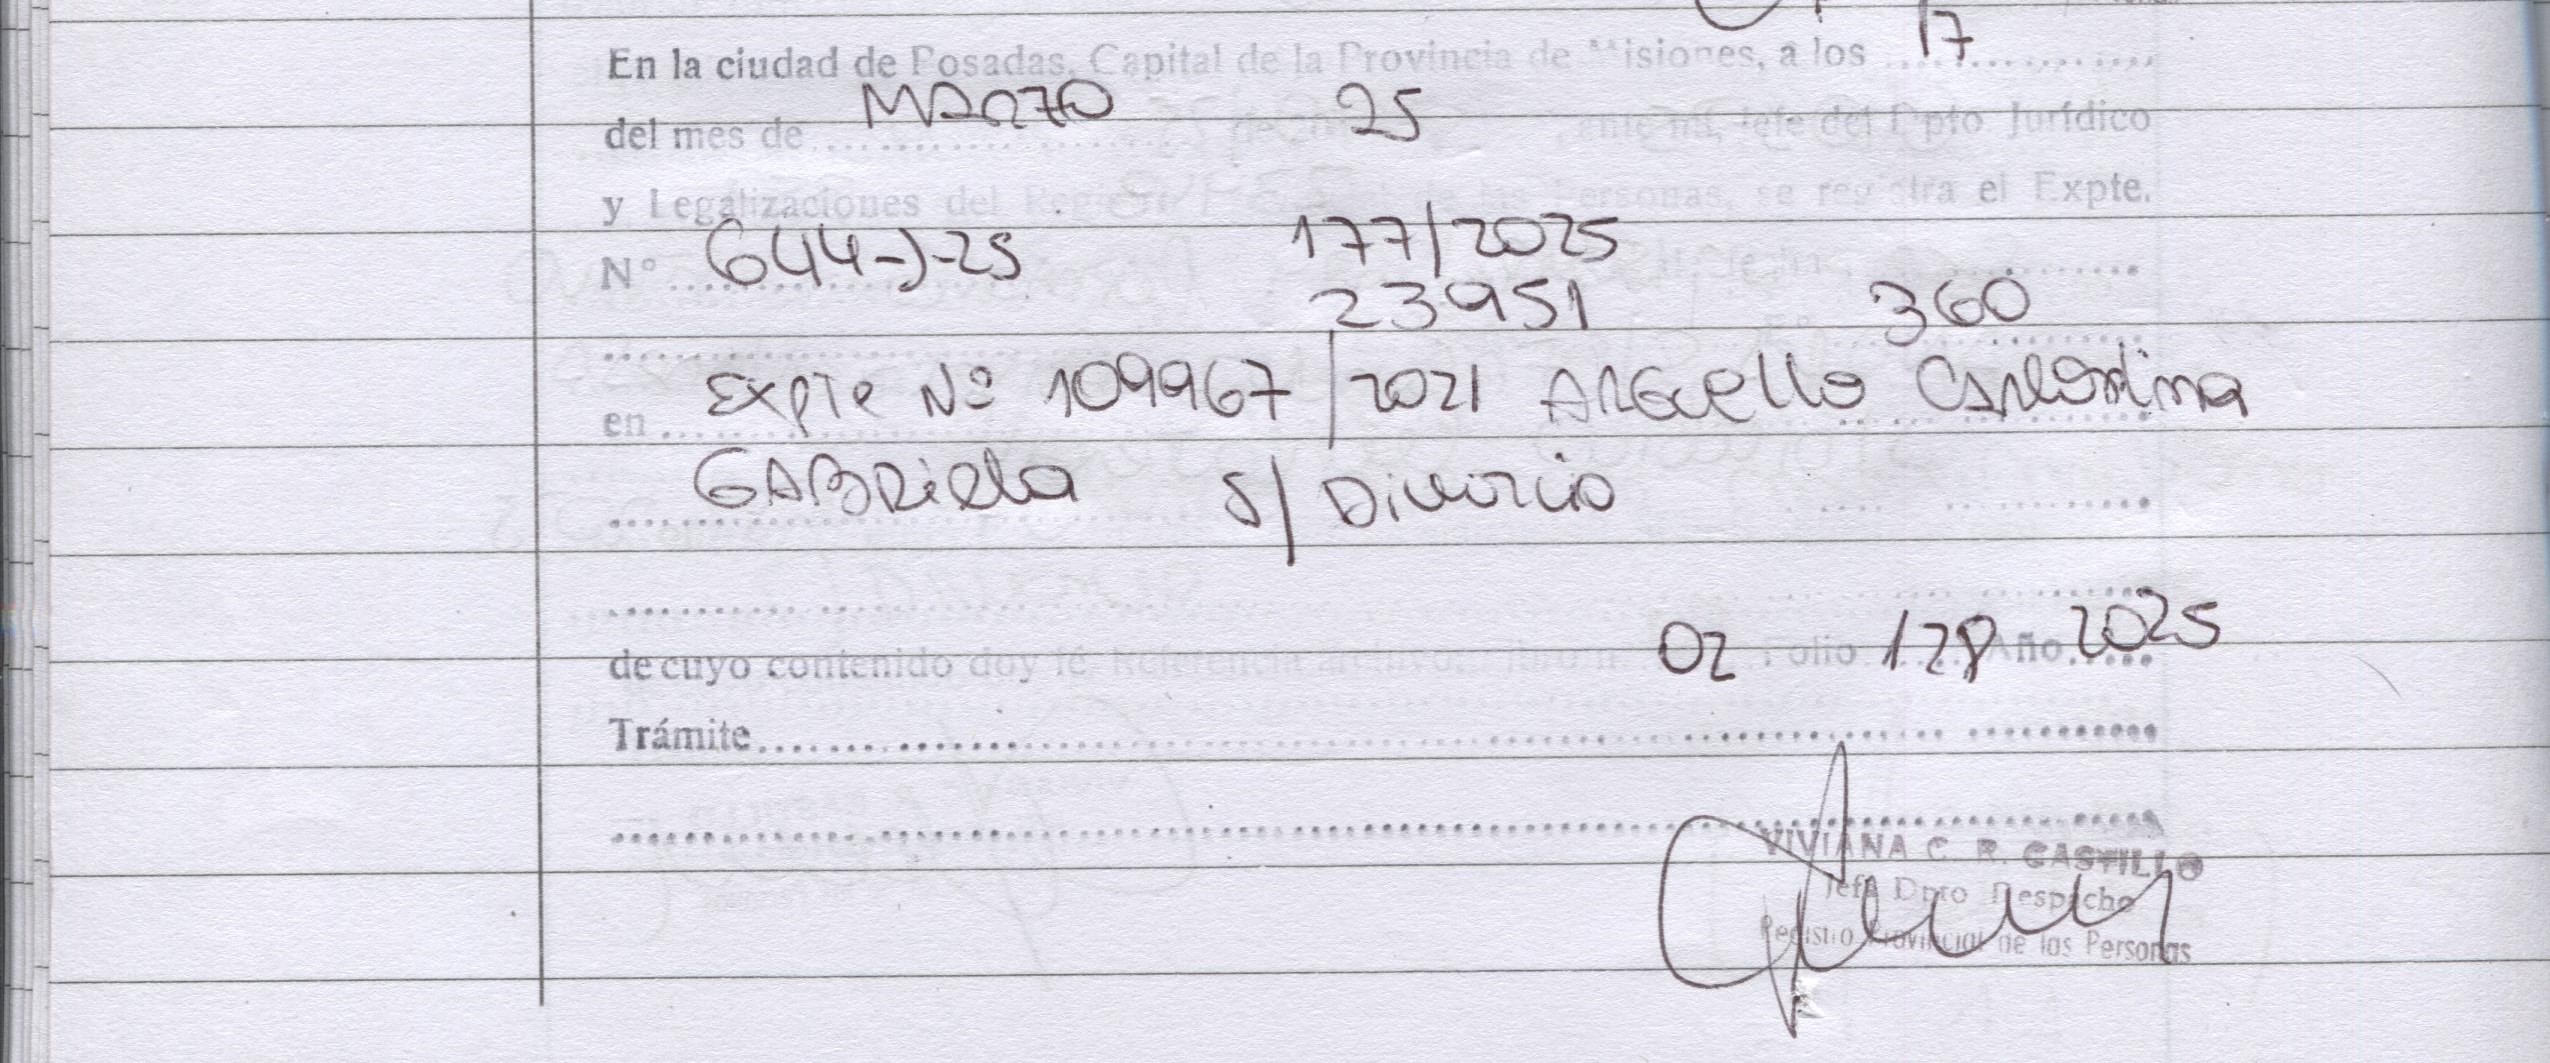 En la ciudad de Posadas, Capital de la Provincia de Misiones, a los 17
del mes de MARZO de 25, ante mí, Jefe del Dpto Jurídico
y Legalizaciones del Registro de las Personas, se registra el Expte.
N° 644-J-25 177/2025
23951 360
en Expte Nº 109967/2021 ARGuello
GABRiela S/ Divorcio
de cuyo contenido doy fé. Referencia 02 Folio 128 Año 2025
Trámite
VIVIANA C. R. CASTILLO
Jefa Dpto Despacho
Registro Provincial de las Personas